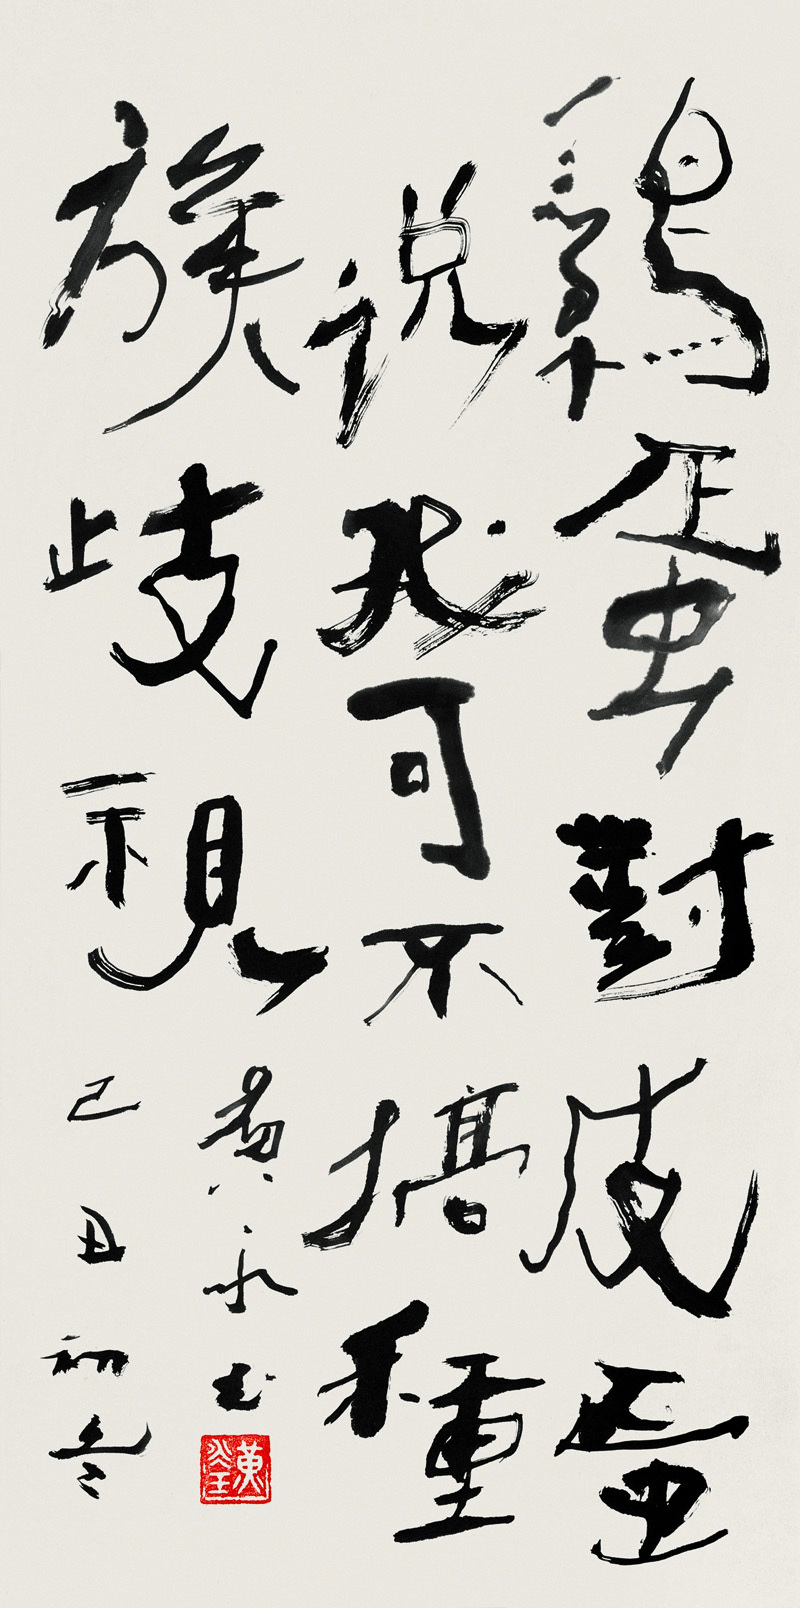 鷄蛋對皮蛋
说我可不搞種
族歧視
黄永玉
己丑初冬
黃永玉